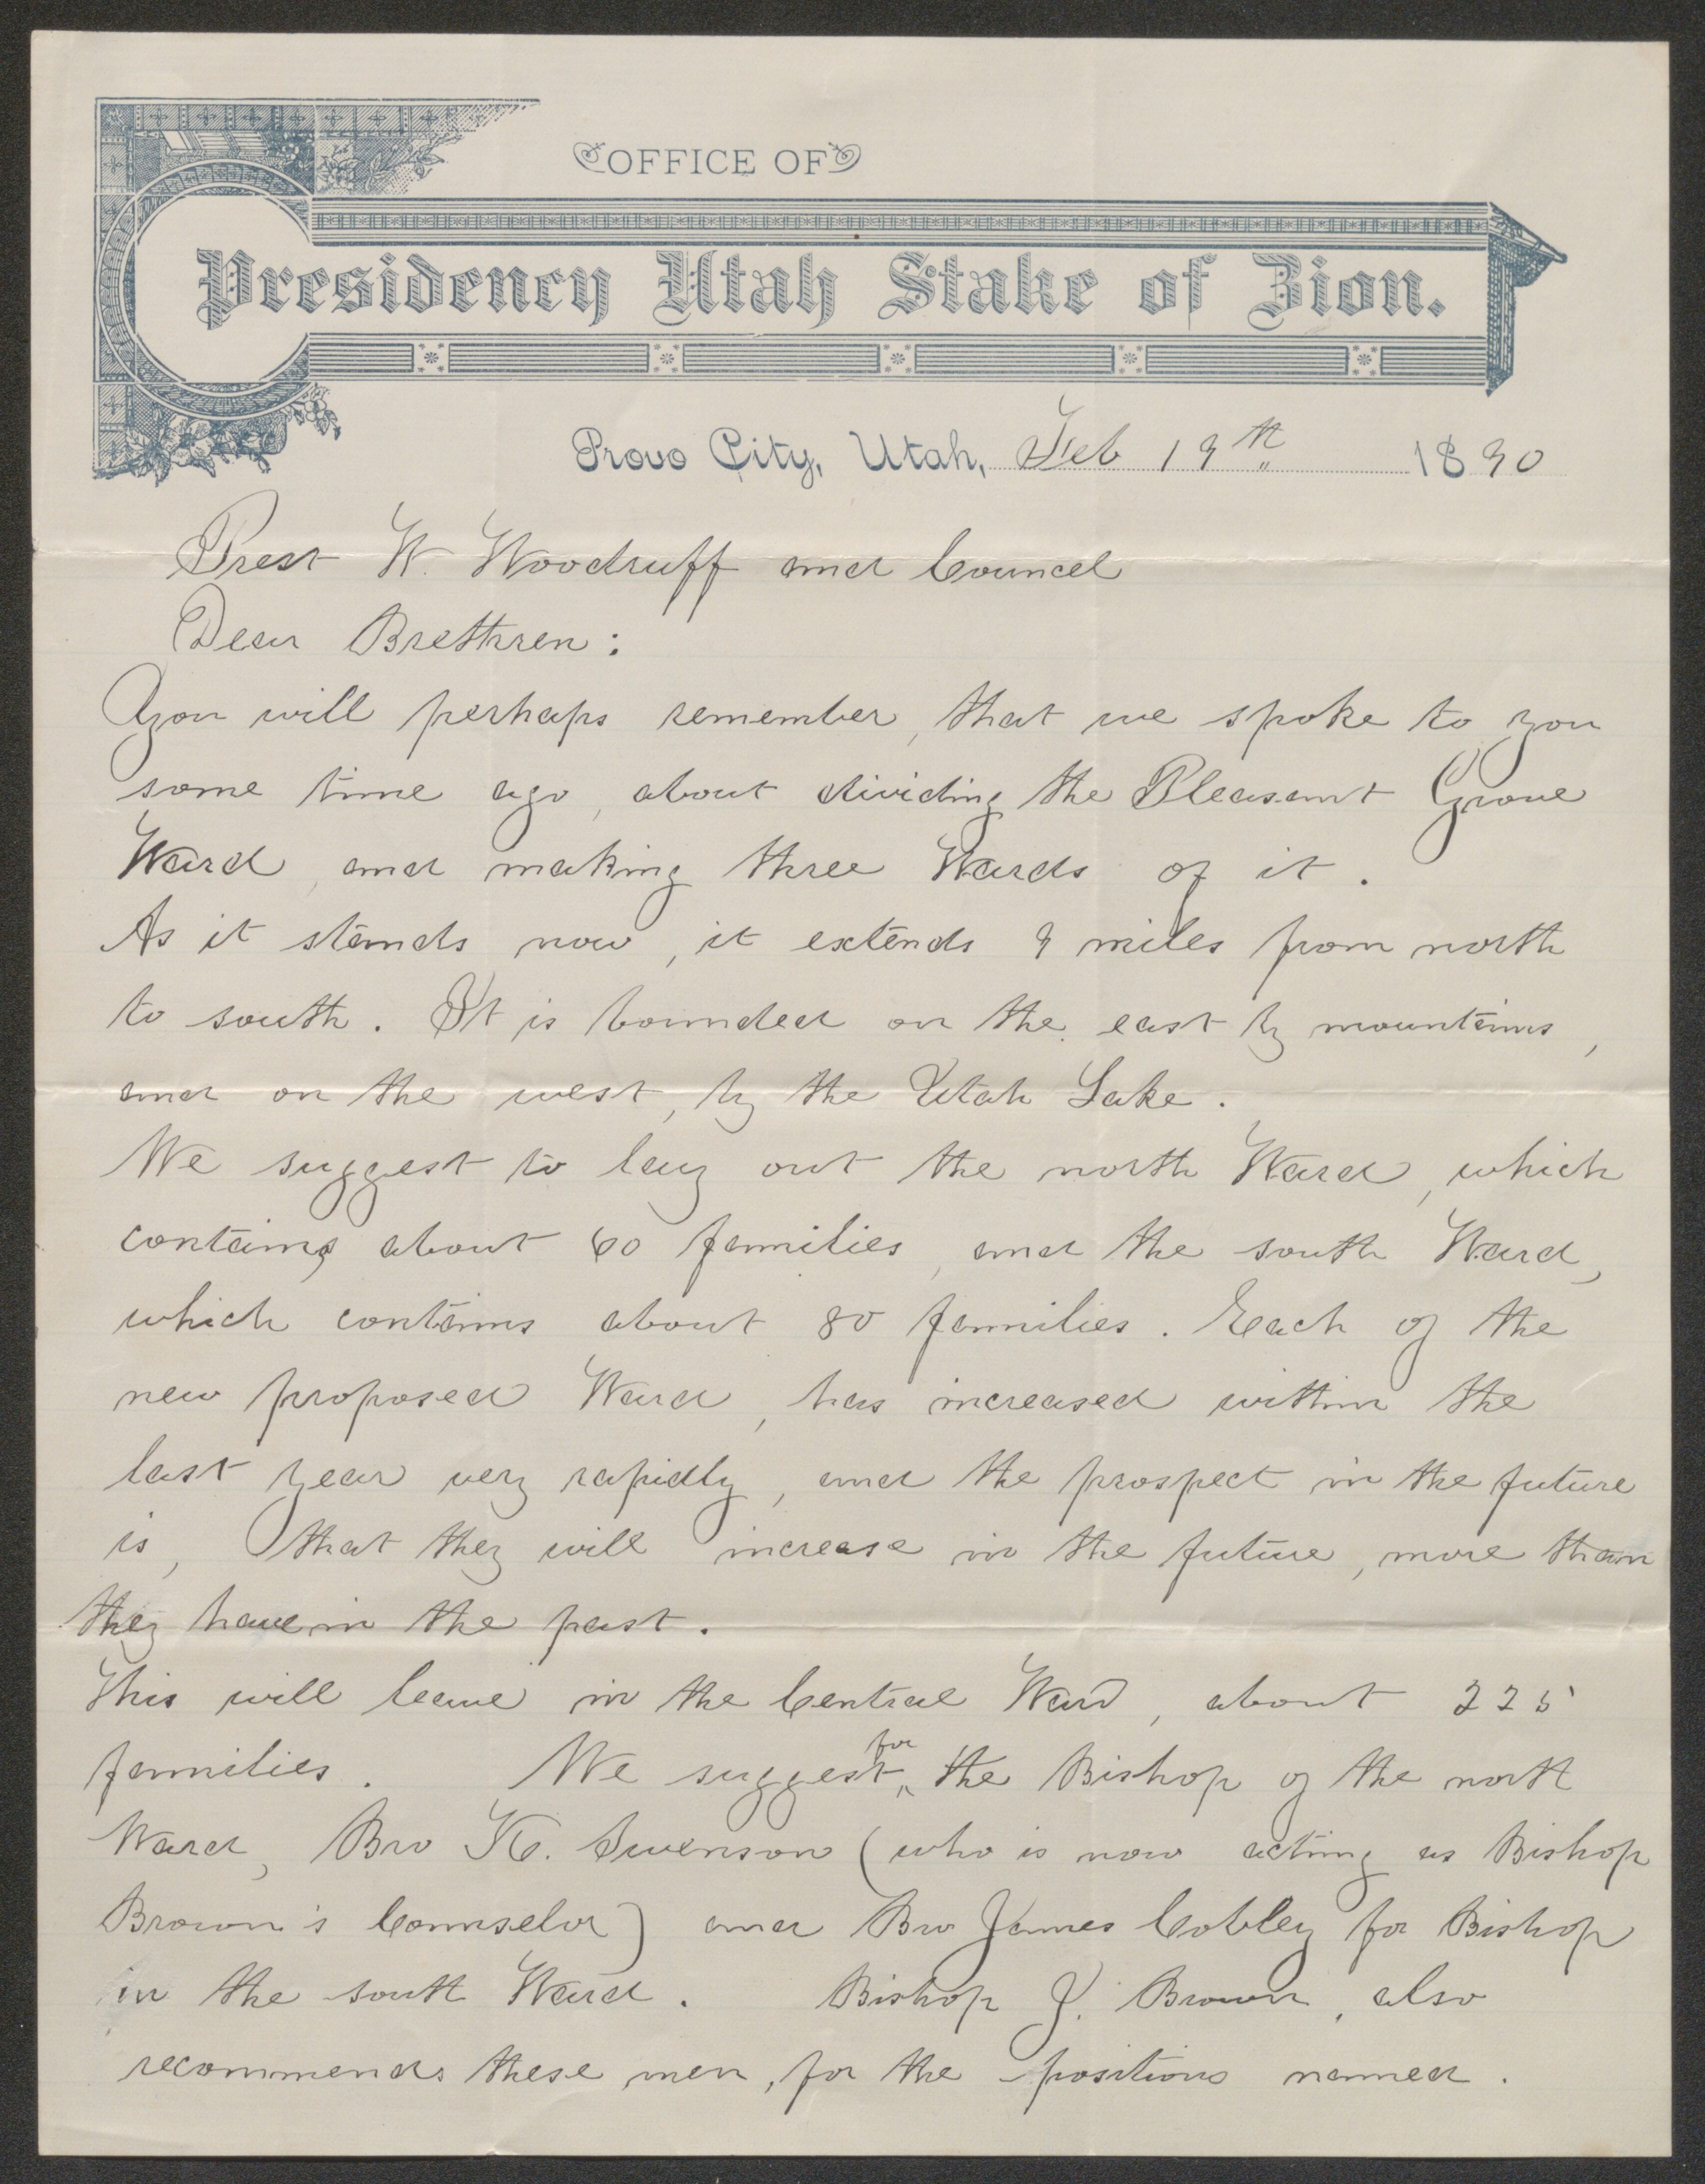 OFFICE OF
Presidency Utah Stake of Zion.
Provo City, Utah, Feb 19th 1890
Prest W. Woodruff and Councel
Dear Brethren:
You will perhaps remember, that we spoke to you
some time ago, about dividing the Pleasant Grove
Ward, and making three Wards of it.
As it stands now, it extends 9 miles from north
to south. It is bounded on the east by mountains,
and on the west, by the Utah Lake.
We suggest to lay out the north Ward, which
contains about 60 families, and the south Ward,
which contains about 80 families. Each of the
new proposed Ward, has increased within the
last year very rapidly, and the prospect in the future
is, that they will increase in the future, more than
they have in the past.
This will leave in the Central Ward, about 225
families. We suggest for the Bishop of the north
Ward, Bro K. Swenson (who is now acting as Bishop
Brown's Counselor) and Bro James Cobley for Bishop
in the south Ward. Bishop J. Brown, also
recommends these men, for the positions named.